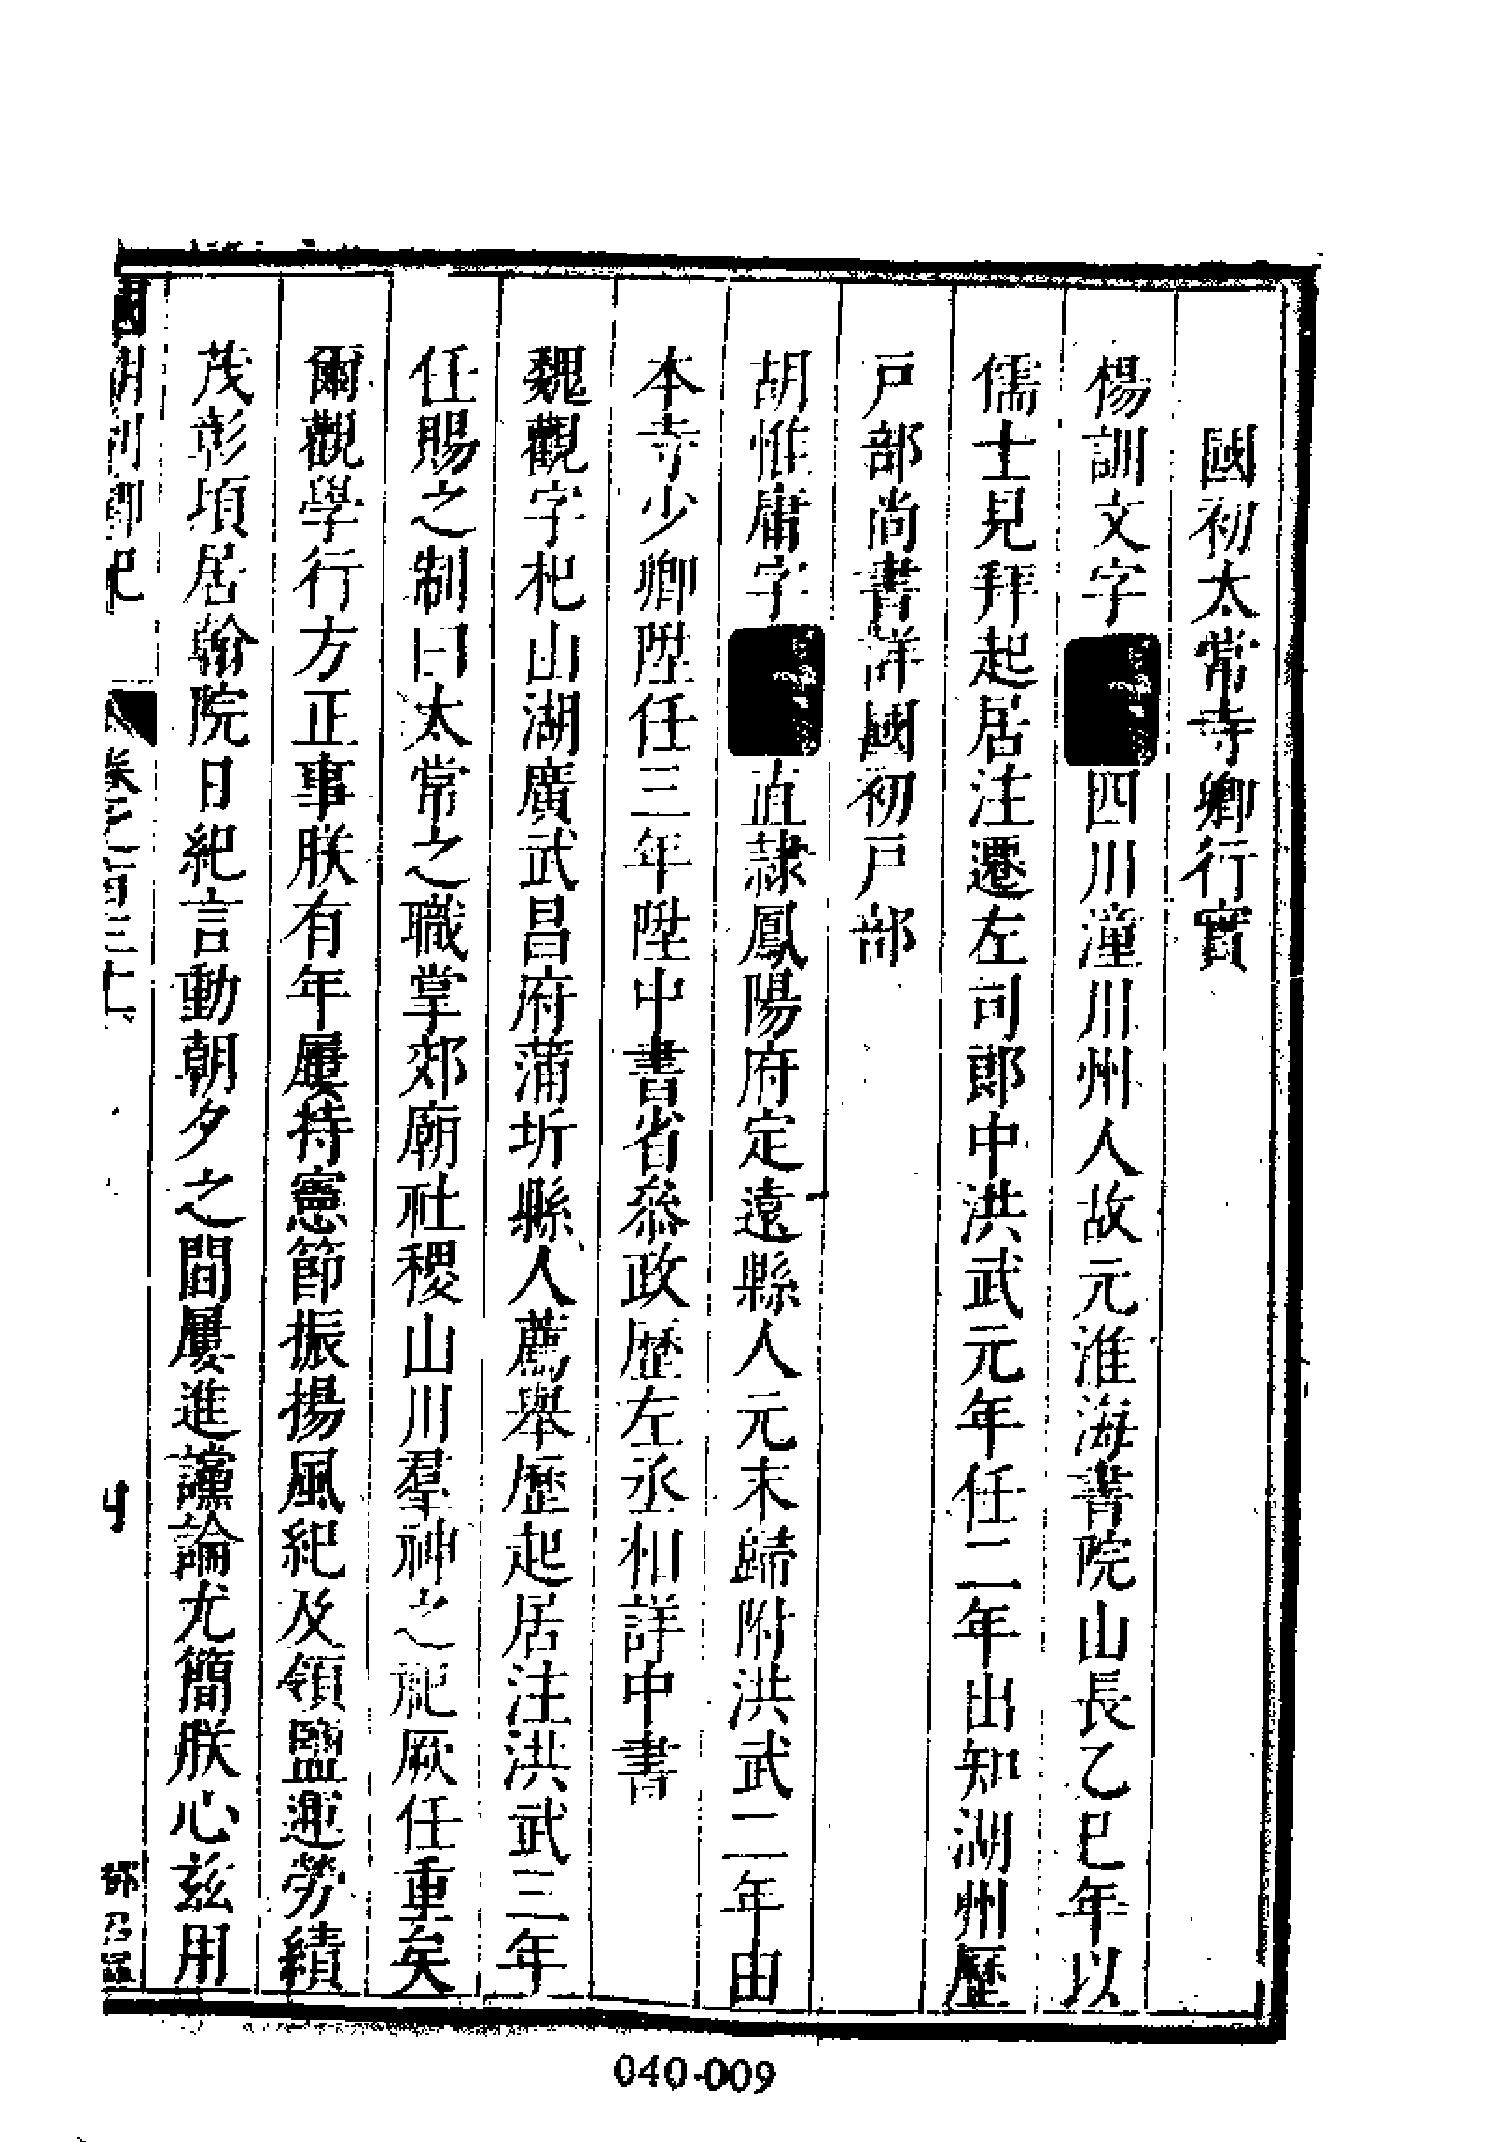 國初太常寺卿行實
楊訓文字四川潼川州人故元淮海書院山長乙巳年以
儒士見拜起居注遷左司郎中洪武元年任二年出知湖州歷
戸部尚書詳國初戸部
胡惟庸字直隷鳳陽府定遠縣人元末歸附洪武二年由
本寺少卿陞任三年陞中書省叅政歴左丞相詳中書
魏觀字杞山湖廣武昌府蒲圻縣人薦舉歴起居注洪武三年
任賜之制曰太常之職掌郊廟社稷山川羣神之祀厥任重矣
爾觀學行方正事朕有年屢持憲節振揚風紀及領鹽運勞績
茂彰頃居翰院日紀言動朝夕之間屢進讜論尤簡朕心兹用
國朝列卿紀
卷之一百三十
040-009